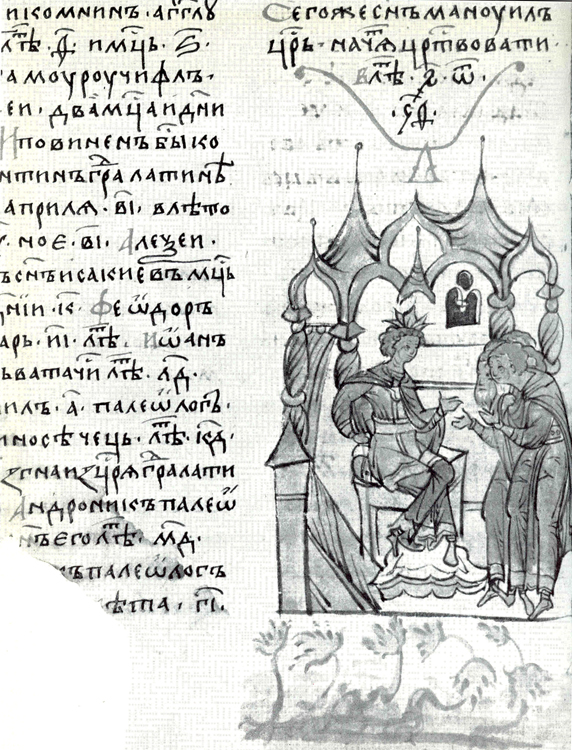 икомнинъ · агг҃лѹ
лѣт҃ · д҃ · имц҃ь · ѕ҃ ·
амоуроучифлъ ·
еи · двамц҃аидн҃и
повиненъ бы ко
нтинъ гра латинѣ
априля · в҃і · влѣто
ное · в҃і · алеѯеи ·
ъ сн҃ъ исакиевъ мц҃ь
дн҃іи · к҃ · феѡдоръ
арь · и҃і · лѣт҃ · иѡанъ
ьватачи лѣт҃ · л҃д ·
илъ · а҃ · палеѡлогъ ·
иносѣчець · лѣт҃ · к҃д ·
згна изц҃ря гра лати
андроникъ палеѡ
нъ его лѣт҃ · м҃д ·
ъ палеѡлогъ
ѣта · г҃і ·
Сегоже сн҃ъ маноуилъ
цр҃ь · нача цр҃твовати ·
влѣт҃ ·